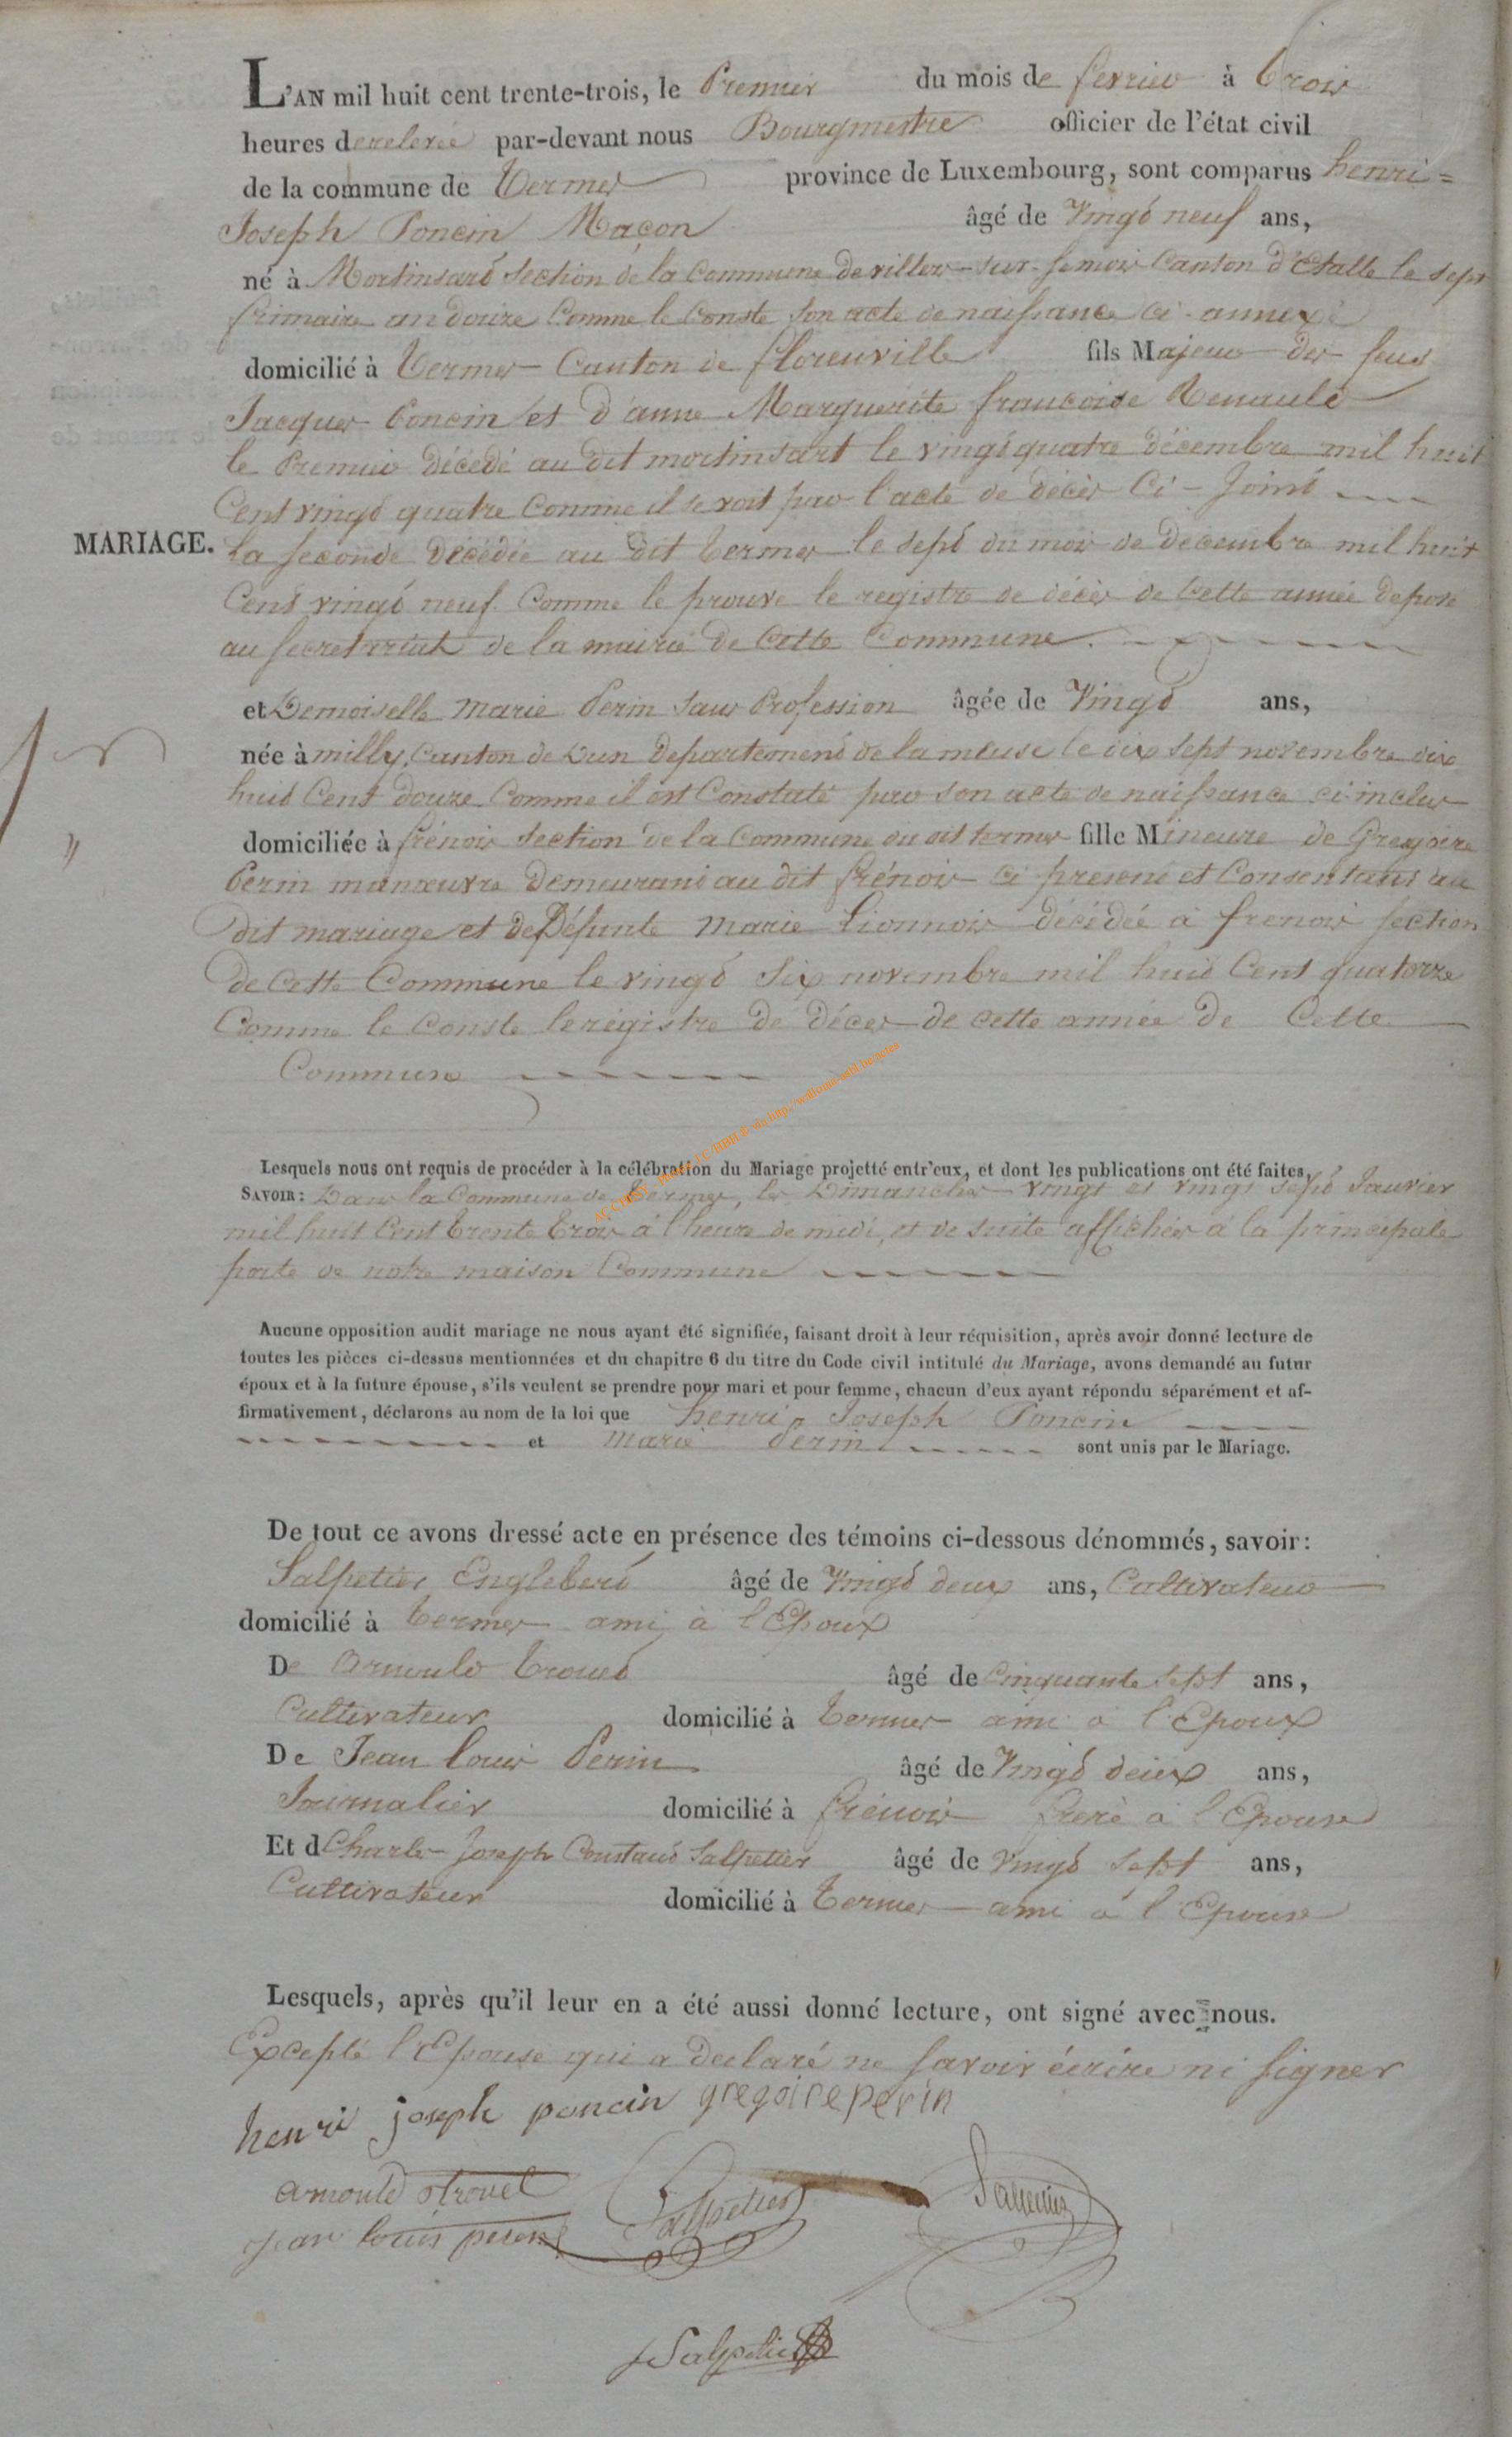 L'AN mil huit cent trente-trois, le Premier du mois de fevrier à trois
heures de relevée par-devant nous Bourgmestre officier de l'état civil
de la commune de termes province de Luxembourg, sont comparus henri =
Joseph Poncin Maçon âgé de Vingt neuf ans,
né à Mortinsart Section de la Commune de villers-sur-semois Canton d'Etalle le sept
frimaire an douze Comme le Conste son acte de naissance ci-annexé
domicilié à termes Canton de florenville fils Majeur des feus
Jacques Poncin et d'anne Marguerite francoise Renauld
le Premier décédé au dit mortinsart le vingt quatre décembre mil huit
Cent vingt quatre Comme il se voit par l'acte de décès Ci-Joint
MARIAGE.
la seconde décédée au dit termes le sept du mois de decembre mil huit
Cent vingt neuf Comme le prouve le registre de décès de Cette année déposé
au secretariat de la mairie de Cette Commune.
et Demoiselle marie Perin Sans Profession âgée de Vingt ans,
née à milly, Canton de Dun departement de la meuse le dix sept novembre dix
huit Cent douze Comme il est Constaté par son acte de naissance ci inclus
domiciliée à frénois Section de la Commune du dit termes fille Mineure de Gregoire
Perin manœuvre demeurant au dit frénois ci present et Consentant au
dit mariage et de Défunte marie Lionnois décédée à frenois section
de Cette Commune le vingt six novembre mil huit Cent quatorze
Comme le Conste le régistre de décès de cette année de Cette
Commune
Lesquels nous ont requis de procéder à la célébration du Mariage projetté entr'eux, et dont les publications ont été faites,
SAVOIR: Dans la Commune de termes, les Dimanches vingt et vingt sept Janvier
mil huit Cent trente trois à l'heure de midi, et de suite affichées à la principale
porte de notre maison Commune
Aucune opposition audit mariage ne nous ayant été signifiée, faisant droit à leur réquisition, après avoir donné lecture de
toutes les pièces ci-dessus mentionnées et du chapitre 6 du titre du Code civil intitulé du Mariage, avons demandé au futur
époux et à la future épouse, s'ils veulent se prendre pour mari et pour femme, chacun d'eux ayant répondu séparément et af-
firmativement, déclarons au nom de la loi que henri Joseph Poncin
et marie Perin sont unis par le Mariage.
De tout ce avons dressé acte en présence des témoins ci-dessous dénommés, savoir:
Salpetier Englebert âgé de Vingt deux ans, Cultivateur
domicilié à termes ami à l'Epoux
De Arnould trouet âgé de Cinquante sept ans,
Cultivateur domicilié à termes ami à l'Epoux
De Jean louis Perin âgé de Vingt deux ans,
Journalier domicilié à frénois frere à l'Epouse
Et d Charles Joseph Constant Salpetier âgé de vingt sept ans,
Cultivateur domicilié à termes ami à l'Epouse
Lesquels, après qu'il leur en a été aussi donné lecture, ont signé avec nous.
Excepté l'Epouse qui a declaré ne savoir écrire ni signer
henri joseph poncin gregoire perin
arnould trouet Salpetier
jean louis perin
Salpetier